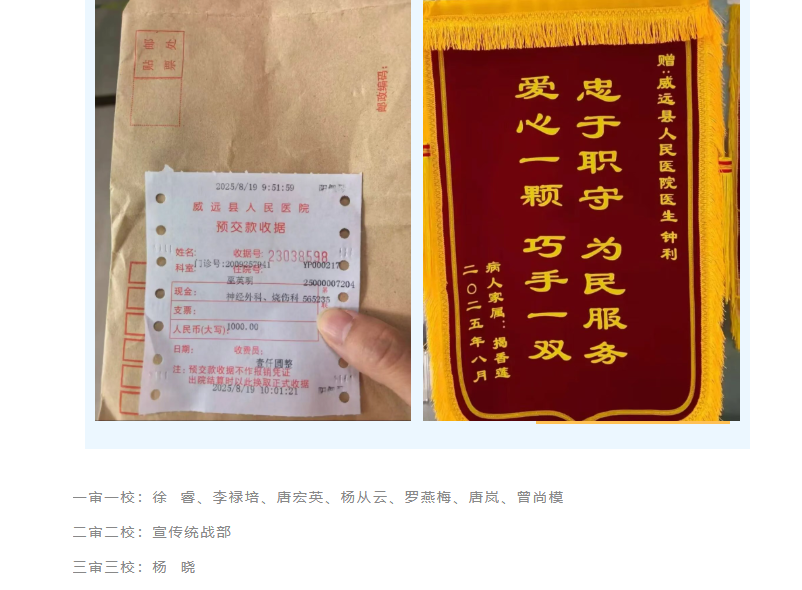 贴邮
票处
邮政编码：
2025/8/19 9:51:59
威远县人民医院
预交款收据
姓名：
收据号：23038598
门诊号：2009257941
YP000217
科室：
住院号：
25000007204
现金：
神经外科、烧伤科 565235
支票：
人民币(大写)：
1000.00
日期：
收费员：
壹仟圆整
注：预交款收据不作报销凭证
出院结算时以此换取正式收据
2025/8/19 10:01:21
赠：威远县人民医院医生 钟利
忠于职守 为民服务
爱心一颗 巧手一双
病人家属：揭香莲
二〇二五年八月
一审一校：徐 睿、李禄培、唐宏英、杨从云、罗燕梅、唐岚、曾尚模
二审二校：宣传统战部
三审三校：杨 晓